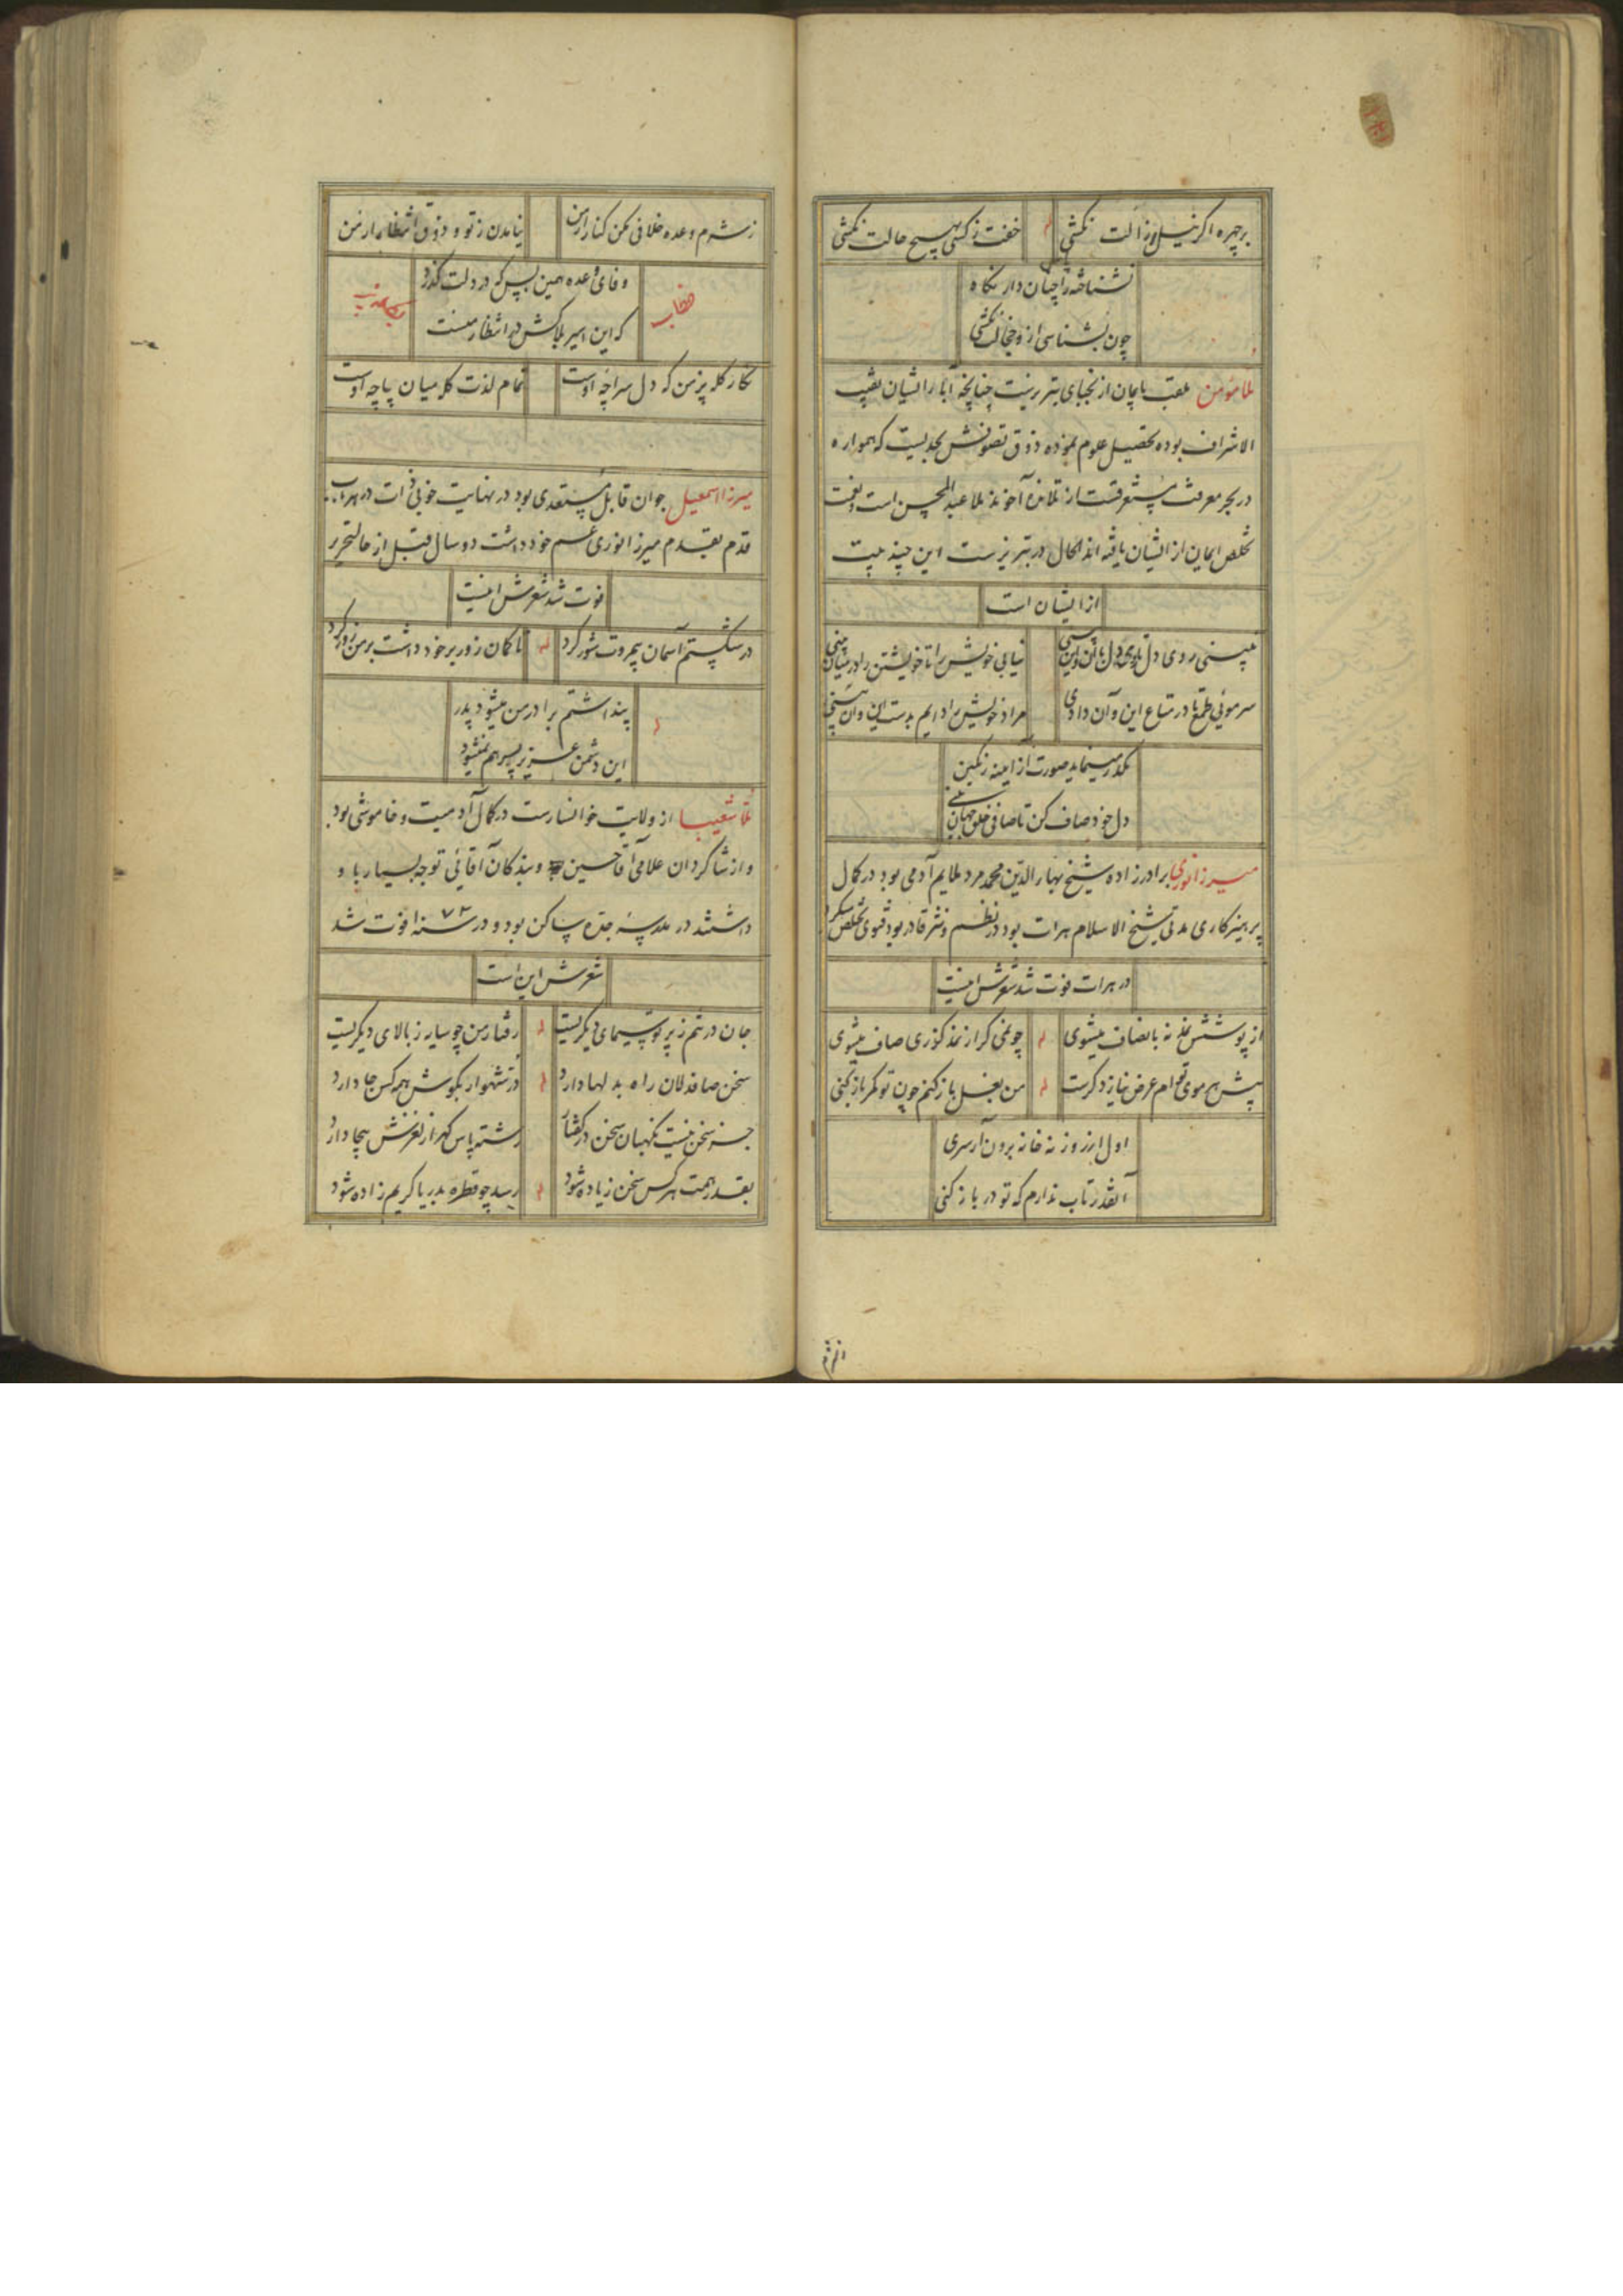 برچهره اگر نیل رذالت نکشی خفت ز کسی بهیچ حالت نکشی
نشناخته را چنان دار نگاه
چون بشناسی ازو خجالت نکشی
ملا مؤمن ملقب بایمان از نجبای تبریزست چنانچه آبا ایشان نقیب
الاشراف بوده تحصیل علوم نموده ذوق تصوفش بحدیست که همواره
در بحر معرفت مستغرقست از تلامذه آخوند ملا عبدالمحسن است
تخلص ایمان از ایشان یافته الحال در تبریزست این چند بیت
از ایشان است
نبینی روی دل تا روی دل با آن و این بینی نیابی خویش را تا خویشتن را در میان بینی
سر موئی طمع تا در متاع این و آن داری مراد خویش را دایم بدست این و آن بینی
مکدر مینماید صورت از آیینه رنگین
دل خود صاف کن تا صافی خلق جهان بینی
میرزا نوری برادرزاده شیخ بهاء الدین محمد مرد ملایم آدمی بود در کمال
پرهیزکاری مدتی شیخ الاسلام هرات بود در نظم و نثر قادر بود تخلص
در هرات فوت شد شعرش اینست
از پوشش نه بانصاف میشوی چو نمی گر از نمد گذری صاف میشوی
پیش هر موی توام عرض نیاز دگرست من بغل باز کنم چون تو کمر باز کنی
اول از روزنه خانه برون آر سری
آنقدر تاب ندارم که تو در باز کنی
ز شرم وعده خلافی مکن کنار از من نیامدن ز تو و ذوق انتظار از من
وفای وعده همین بس که در دلت گذرد
که این اسیر بلاکش در انتظار منست
نگار کله پز من که دل سراچه اوست تمام لذت کله میان پاچه اوست
میرزا اسمعیل جوان قابل مستعدی بود در نهایت خوبی ذات در هر باب
قدم بقدم میرزا نوری عم خود داشت دو سال قبل از حال تحریر
فوت شد شعرش اینست
در شکستم آسمان بیمروت شور کرد تا کمان زور بر خود داشت بر من زور کرد
پنداشتم برادر من میشود پدر
این دشمن عزیز پسر هم نمیشود
ملا شعیبا از ولایت خوانسارست در کمال آدمیت و خاموشی بود
و از شاگردان علامی آقا حسین و بندگان آقائی توجه بسیار با و
داشتند در مدرسه جده ساکن بود و در سنه ۱۰۷۲ فوت شد
شعرش این است
جان در تنم ز پرتو سیمای دیگریست رفتار من چو سایه ز بالای دیگریست
سخن صافدلان راه بدلها دارد در شهوار بگوش همه کس جا دارد
جز سخن نیست نگهبان سخن در گفتار رشته پاس گهر از لغزش بیجا دارد
بقدر همت هر کس سخن زیاده شود رسد چو قطره بدریا کریم زاده شود